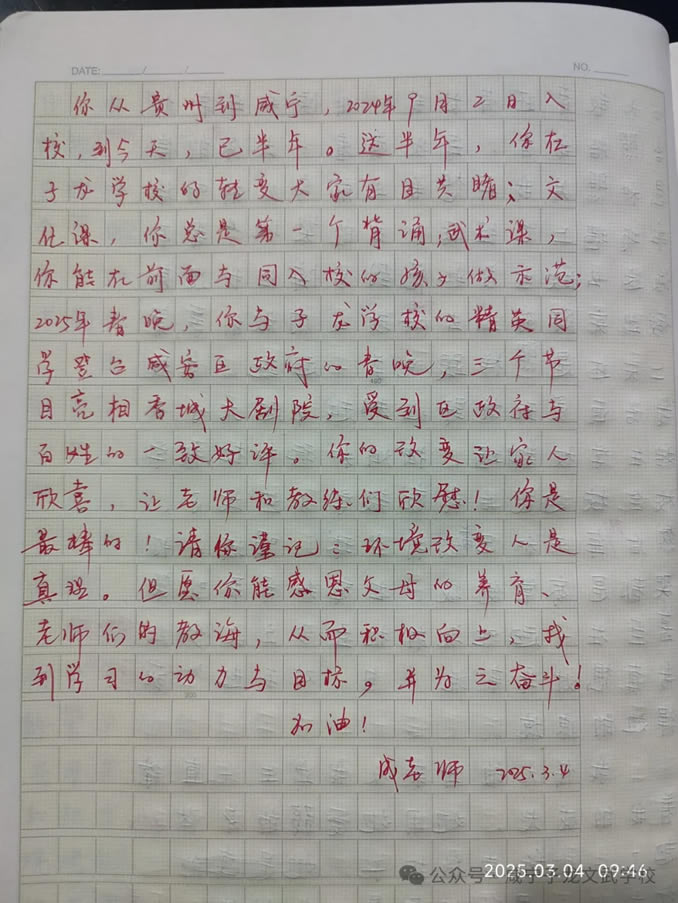 DATE: / /
NO.
你从贵州到咸宁，2024年9月2日入
校，到今天，已半年。这半年，你在
子龙学校的转变大家有目共睹；文
化课，你总是第一个背诵；武术课，
你能在前面与同入校的孩子做示范；
2025年春晚，你与子龙学校的精英同
学登台咸安区政府的春晚，三个节
目亮相香城大剧院，受到区政府与
百姓的一致好评。你的改变让家人
欣喜，让老师和教练们欣慰！你是
最棒的！请你谨记：环境改变人是
真理。但愿你能感恩父母的养育、
老师们的教诲，从而积极向上，找
到学习的动力与目标，并为之奋斗！
加油！
成老师 2025.3.4
2025.03.04 09:46
公众号
文武学校